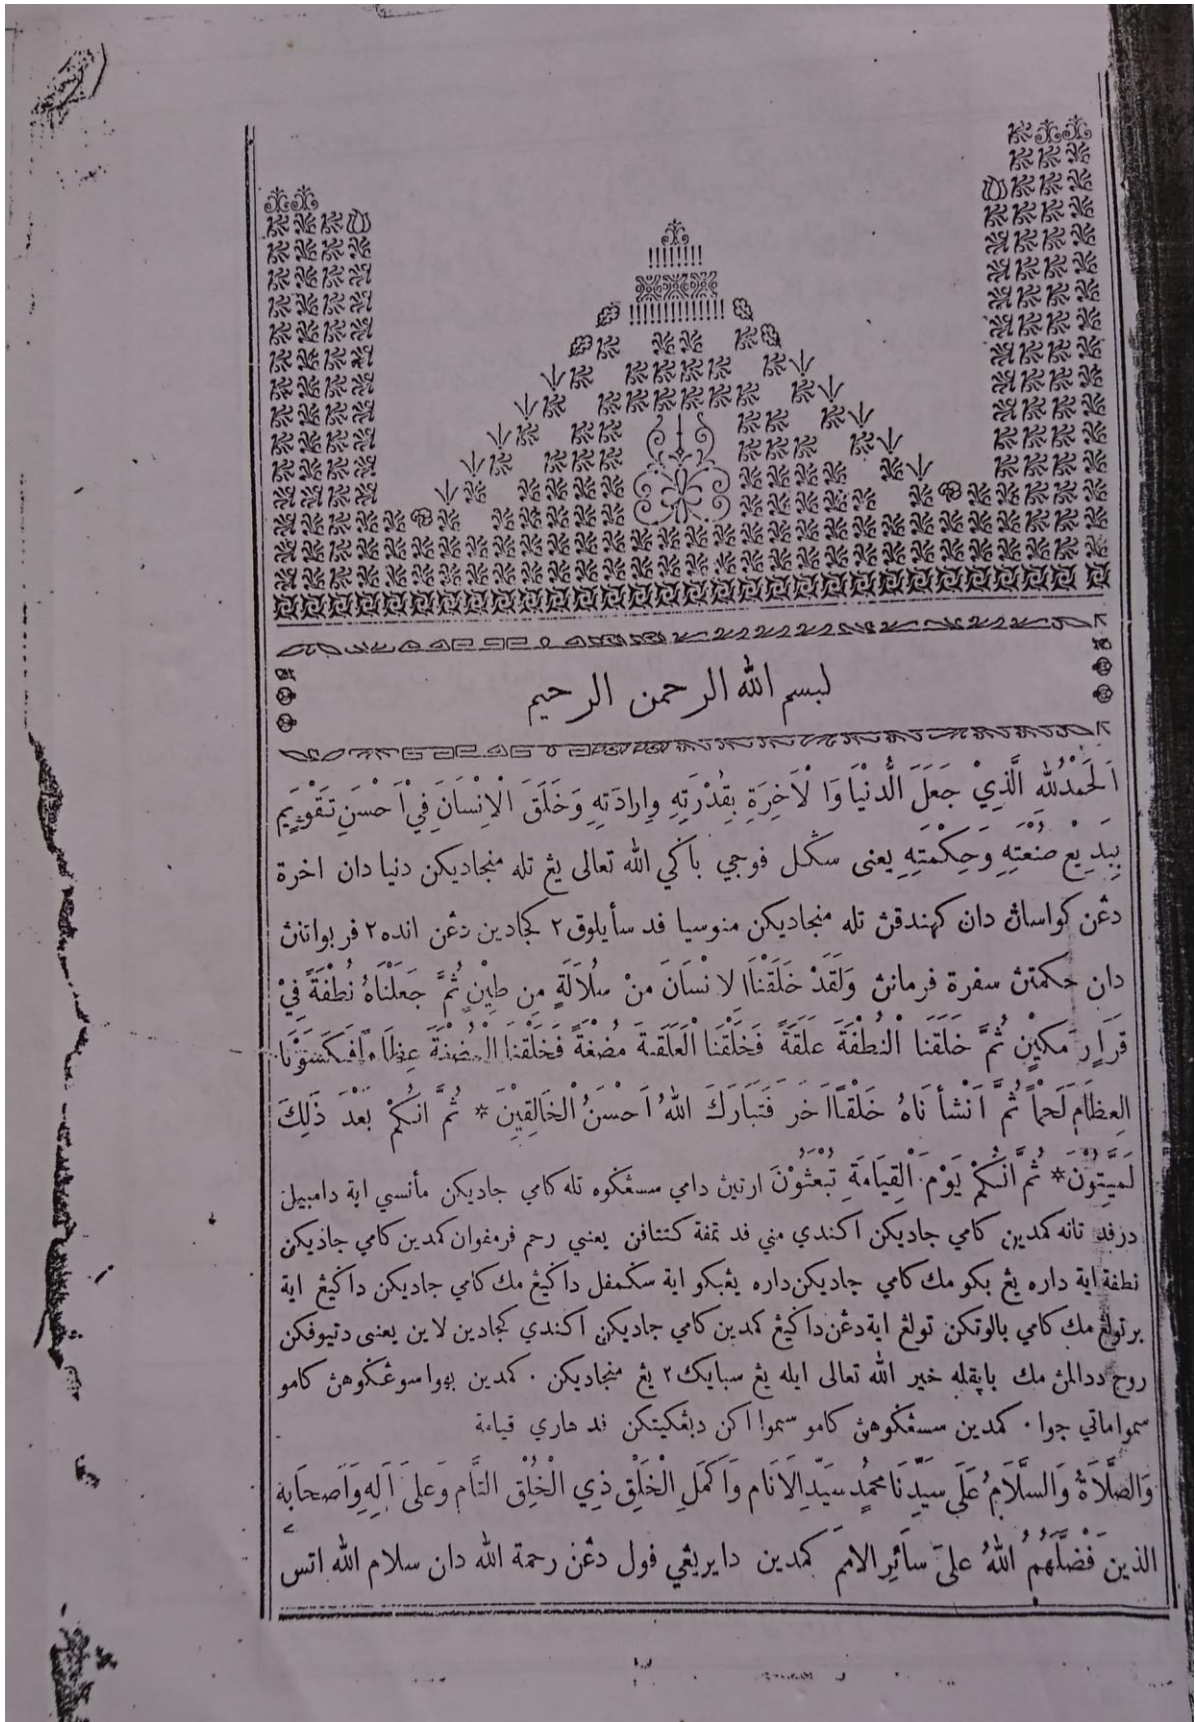 بسم الله الرحمن الرحيم
اَلْحَمْدُ لِلّٰهِ الَّذِيْ جَعَلَ الدُّنْيَا وَا لْاَخِرَةِ بِقُدْرَتِهِ وِارَادَتِهِ وَخَلَقَ الْاِنْسَانَ فِيْ اَحْسَنِ تَقْوِيْمٍ
بِبَدِيْعِ صُنْعَتِهِ وَحِكْمَتِهِ يعنى سڬل فوجي باڬي الله تعالى يڠ تله منجاديكن دنيا دان اخرة
دڠن كواساڽ دان كهندقڽ تله منجاديكن منوسيا فد سأيلوق٢ كجادين دڠن انده٢ فربواتنڽ
دان حكمتڽ سفرة فرمانڽ وَلَقَدْ خَلَقْنَا الانْسَانَ مِنْ سُلَالَةٍ مِن طِيْنٍ ثُمَّ جَعَلْنَاهُ نُطْفَةً فِيْ
قَرَارٍ مَكِيْنٍ ثُمَّ خَلَقْنَا الْنُطْفَةَ عَلَقَةً فَخَلَقْنَا الْعَلَقَةَ مُضْغَةً فَخَلَقْنَا الْمُضْغَةَ عِظَامًا فَكَسَوْنَا
العِظَامَ لَحْماً ثُمَّ اَنْشأ نَاهُ خَلْقًا اَخَر فَتَبَارَكَ اللهُ اَحْسَنُ الْخَالِقِيْنَ * ثُمَّ اِنَكُمْ بَعْدَ ذَلِكَ
لَمَيِّتُوْنَ * ثُمَّ اِنَّكُمْ يَوْمَ الْقِيَامَةِ تُبْعَثُوْنَ ارتيڽ دامي سسڠڬوه تله كامي جاديكن مأنسي اية دامبيل
درفد تانه كمدين كامي جاديكن اكندي مني فد تمفة كتتافن يعني رحم فرمفوان كمدين كامي جاديكن
نطفة اية داره يڠ بكو مك كامي جاديكن داره يڠبكو اية سكمفل داڬيڠ مك كامي جاديكن داڬيڠ اية
برتولڠ مك كامي بالوتكن تولڠ اية دڠن داڬيڠ كمدين كامي جاديكن اكندي كجادين لاين يعنى دتيوفكن
روح ددالمڽ مك باڽقله خير الله تعالى ايله يڠ سبايك٢ يڠ منجاديكن ٠ كمدين بهوا سوڠڬوهڽ كامو
سموا ماتي جوا ٠ كمدين سسڠڬوهڽ كامو سموا اكن دبڠكيتكن فد هاري قيامة
وَالصَّلَاةُ وَالسَّلَامُ عَلَى سَيِّدِنَا مُحمدٍ سَيّدِ الاَنَام وَاَكْمَلِ الْخَلْقِ ذِي الْخُلْقِ التَّامِ وَعَلىَ اَلِهِ وَاَصحَابِهِ
الذينَ فَضَّلَهُمُ اللهُ علىَ سَاَئِرِ الامَم كمدين دايريڠي فول دڠن رحمة الله دان سلام الله اتس